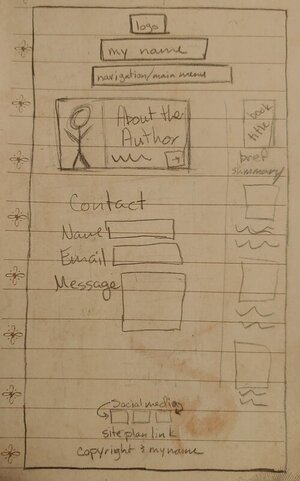 logo
my name
navigation/main menu
About the
Author
book
title
brief
summary
Contact
Name
Email
Message
Social media
site plan link
copyright & my name